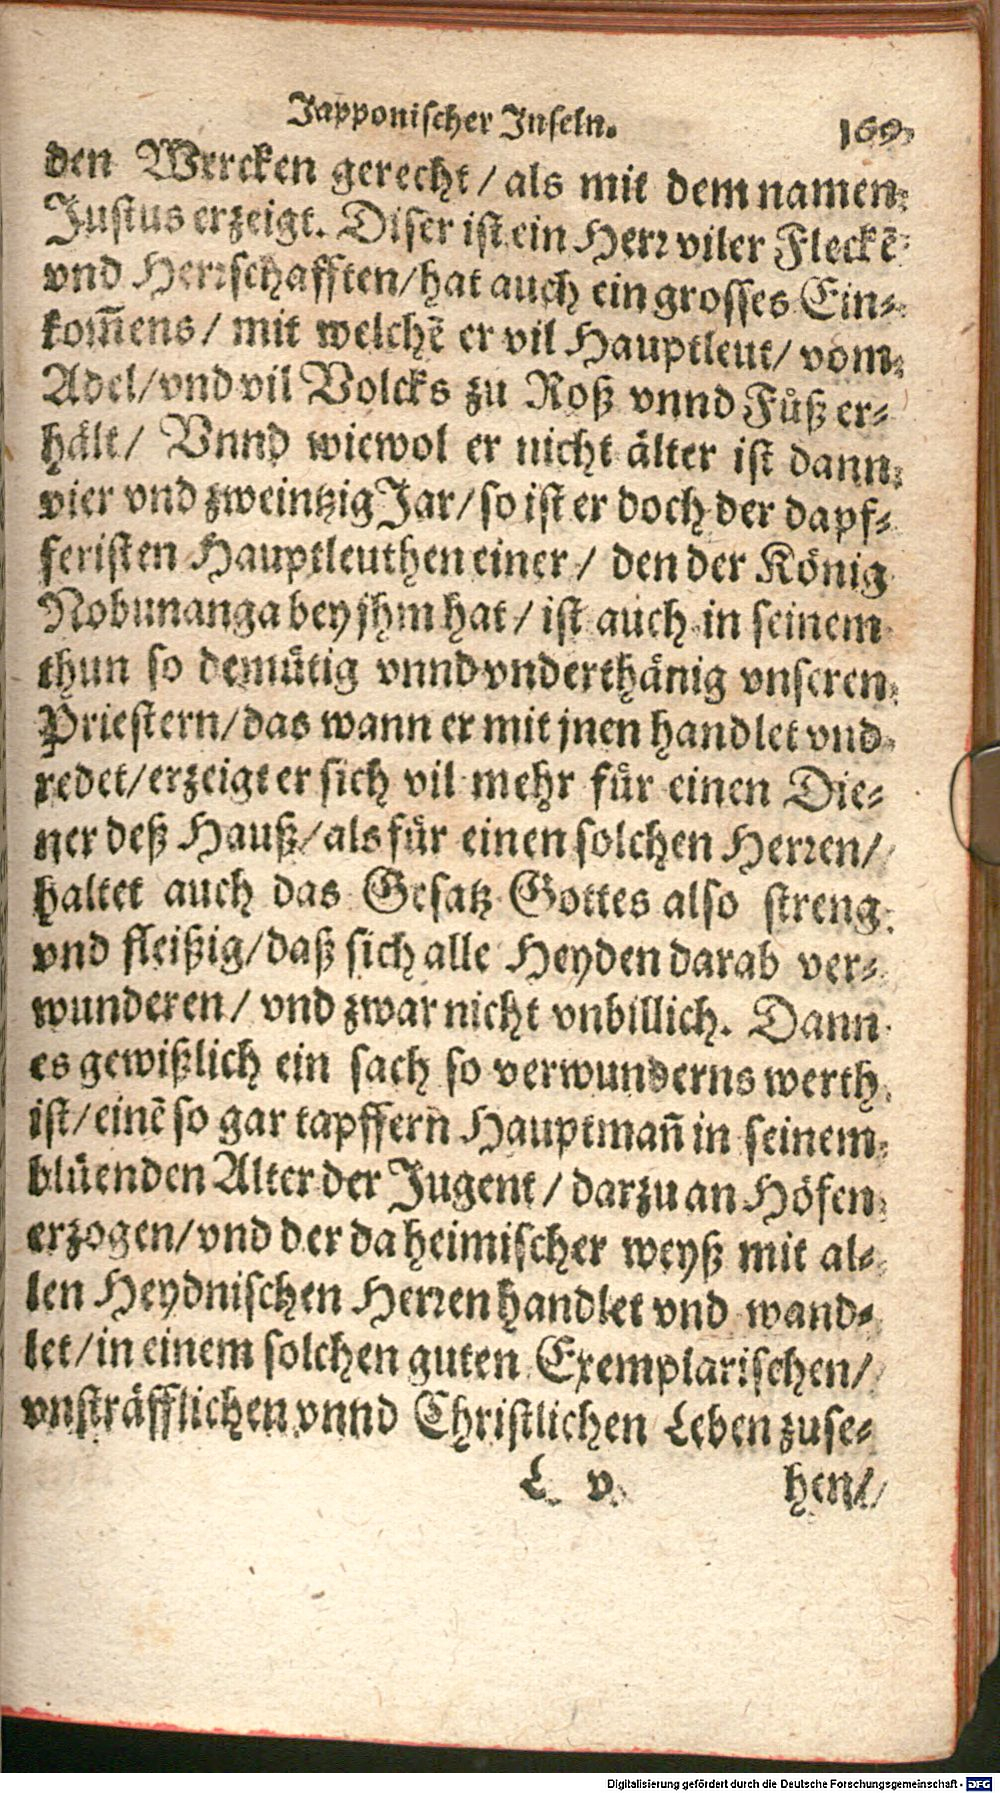 Japponischer Inseln. 169
den Wercken gerecht / als mit dem namen
Justus erzeigt. Diser ist ein Herr viler Fleckē
vnd Herrschafften / hat auch ein grosses Ein⸗
kom̄ens / mit welchē er vil Hauptleut / vom
Adel / vnd vil Volcks zu Roß vnnd Fuͦß er⸗
hält / Vnnd wiewol er nicht älter ist dann
vier vnd zweintzig Jar / so ist er doch der dapf⸗
feristen Hauptleuthen einer / den der König
Nobunanga bey jhm hat / ist auch in seinem
thun so demütig vnnd vnderthänig vnseren
Priestern / das wann er mit jnen handlet vnd
redet / erzeigt er sich vil mehr für einen Die⸗
ner deß Hauß / als für einen solchen Herren /
haltet auch das Gesatz Gottes also streng
vnd fleißig / daß sich alle Heyden darab ver⸗
wunderen / vnd zwar nicht vnbillich. Dann
es gewißlich ein sach so verwunderns werth
ist / einē so gar tapffern Hauptman̄ in seinem
blüenden Alter der Jugent / darzu an Höfen
erzogen / vnd der da heimischer weyß mit al⸗
len Heydnischen Herren handlet vnd wand⸗
let / in einem solchen guten Exemplarischen /
vnsträfflichen vnnd Christlichen Leben zuse⸗
L v hen /
Digitalisierung gefördert durch die Deutsche Forschungsgemeinschaft - DFG